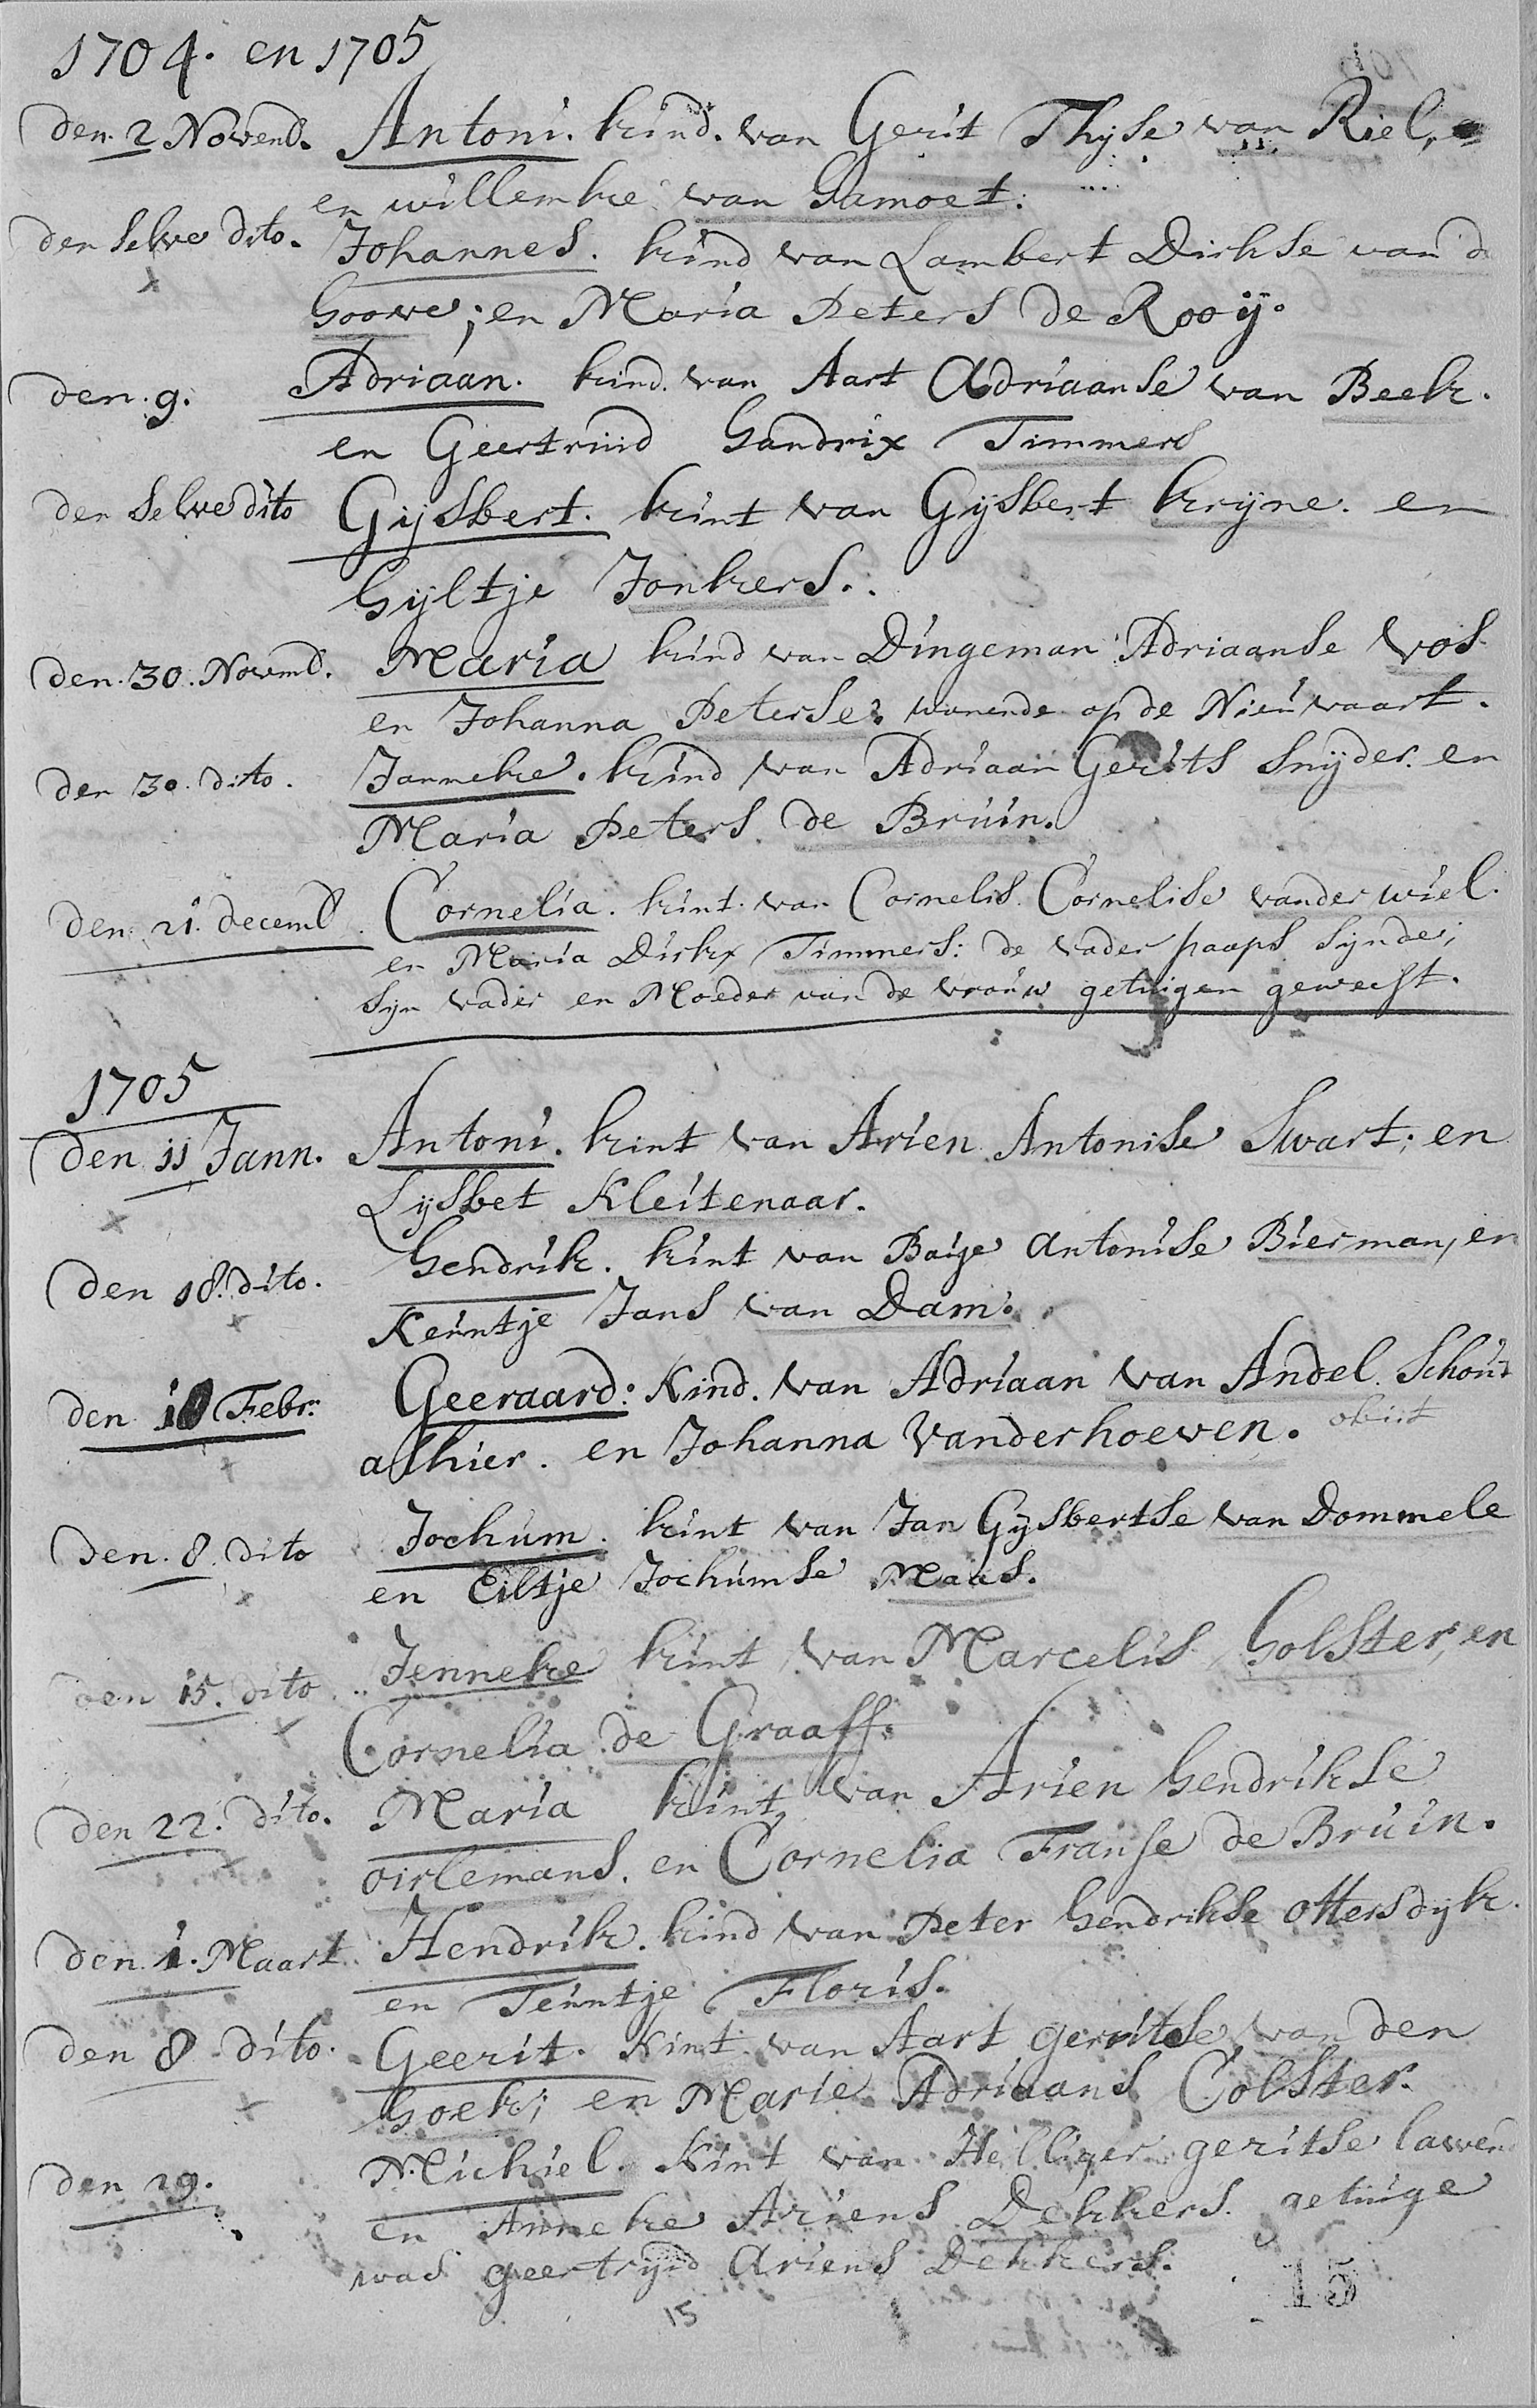 1704. en 1705
den. 2 Novemb. Antoni. kind. van Gerit Thyse van Riel,
en willemke van Hamoet.
den selve dito. Johannes. kind van Lambert Dirkse van d
Hoove; en Maria Peters de Rooij.
den. 9. Adriaan. kind. van Aart Adriaanse van Beek.
en Geertruid Handrix Timmers
den selve dito Gijsbert. kint van Gijsbert krijne. en
Hijltje Jonkers.
den. 30. Novemb. Maria kind van Dingeman Adriaanse Vos
en Johanna Peterse. wonende op de Nieuwaart.
den 30. dito. Janneke. kind van Adriaan Gerits Snyder. en
Maria Peters de Bruin.
den. 21. decemb. Cornelia. kint. van Cornelis. Cornelise vander wiel.
en Maria Dirkx Timmers: de vader paaps synde;
syn vader en Moeder van de vrouw getuigen geweest.
1705
den 11 Jann. Antoni. kint van Arien Antonise Swart; en
Lysbet Kleitenaar.
den 18. dito. Hendrik. kint van Baije Antonise Bierman, en
Keuntje Jans van Dam.
den 10 Febr. Geeraard: Kind. van Adriaan van Andel. Schout
alhier. en Johanna Vanderhoeven. obiit
den. 8. dito Jochum. kint van Jan Gysbertse van Dommele
en Eiltje Jochumse Maas.
den 15. dito Jenneke kint van Marcelis Holster, en
Cornelia de Graaff.
den 22. dito. Maria kint, van Arien Hendrikse
oirlemans. en Cornelia Franse de Bruin.
den. 1. Maart. Hendrik. kind van Peter Hendrikse Ottersdyk.
en Teuntje Floris.
den 8. dito. Geerit. Kint van Aart gerritse van den
Hoek; en Marie Adriaans Colster.
den 29. Michiel. Kint van Hilliger geritse
en Anneke Ariens Dekkers. getuige
was geertryd Ariens Dekkers.
15
15